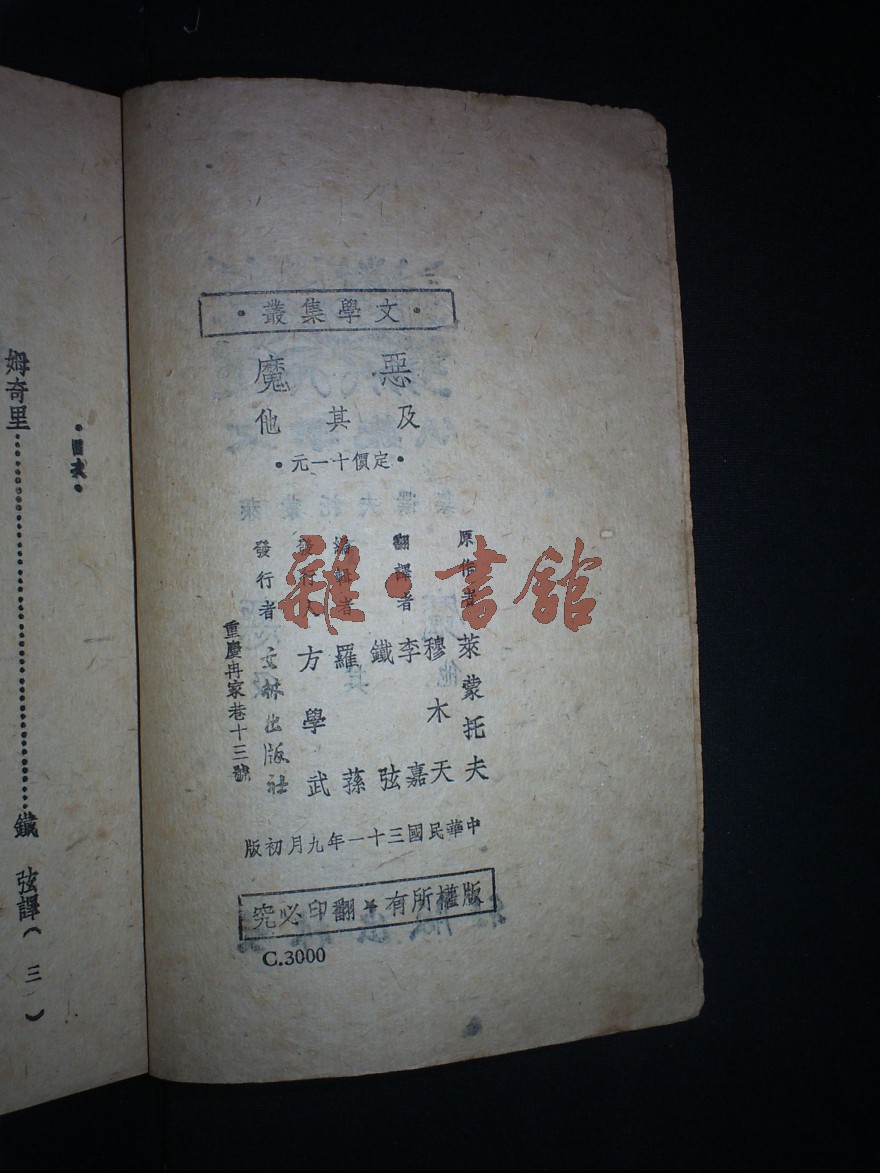 ·文學集叢·
惡魔
及其他
·定價十一元·
原作者 萊蒙托夫
翻譯者 穆木天
李嘉
鐵弦
編輯者 羅蓀
發行人 方學武
發行者 文林出版社
重慶冉家巷十三號
中華民國三十一年九月初版
版權所有★翻印必究
C.3000
·目次·
姆奇里……鐵弦譯（三）
雜·書館